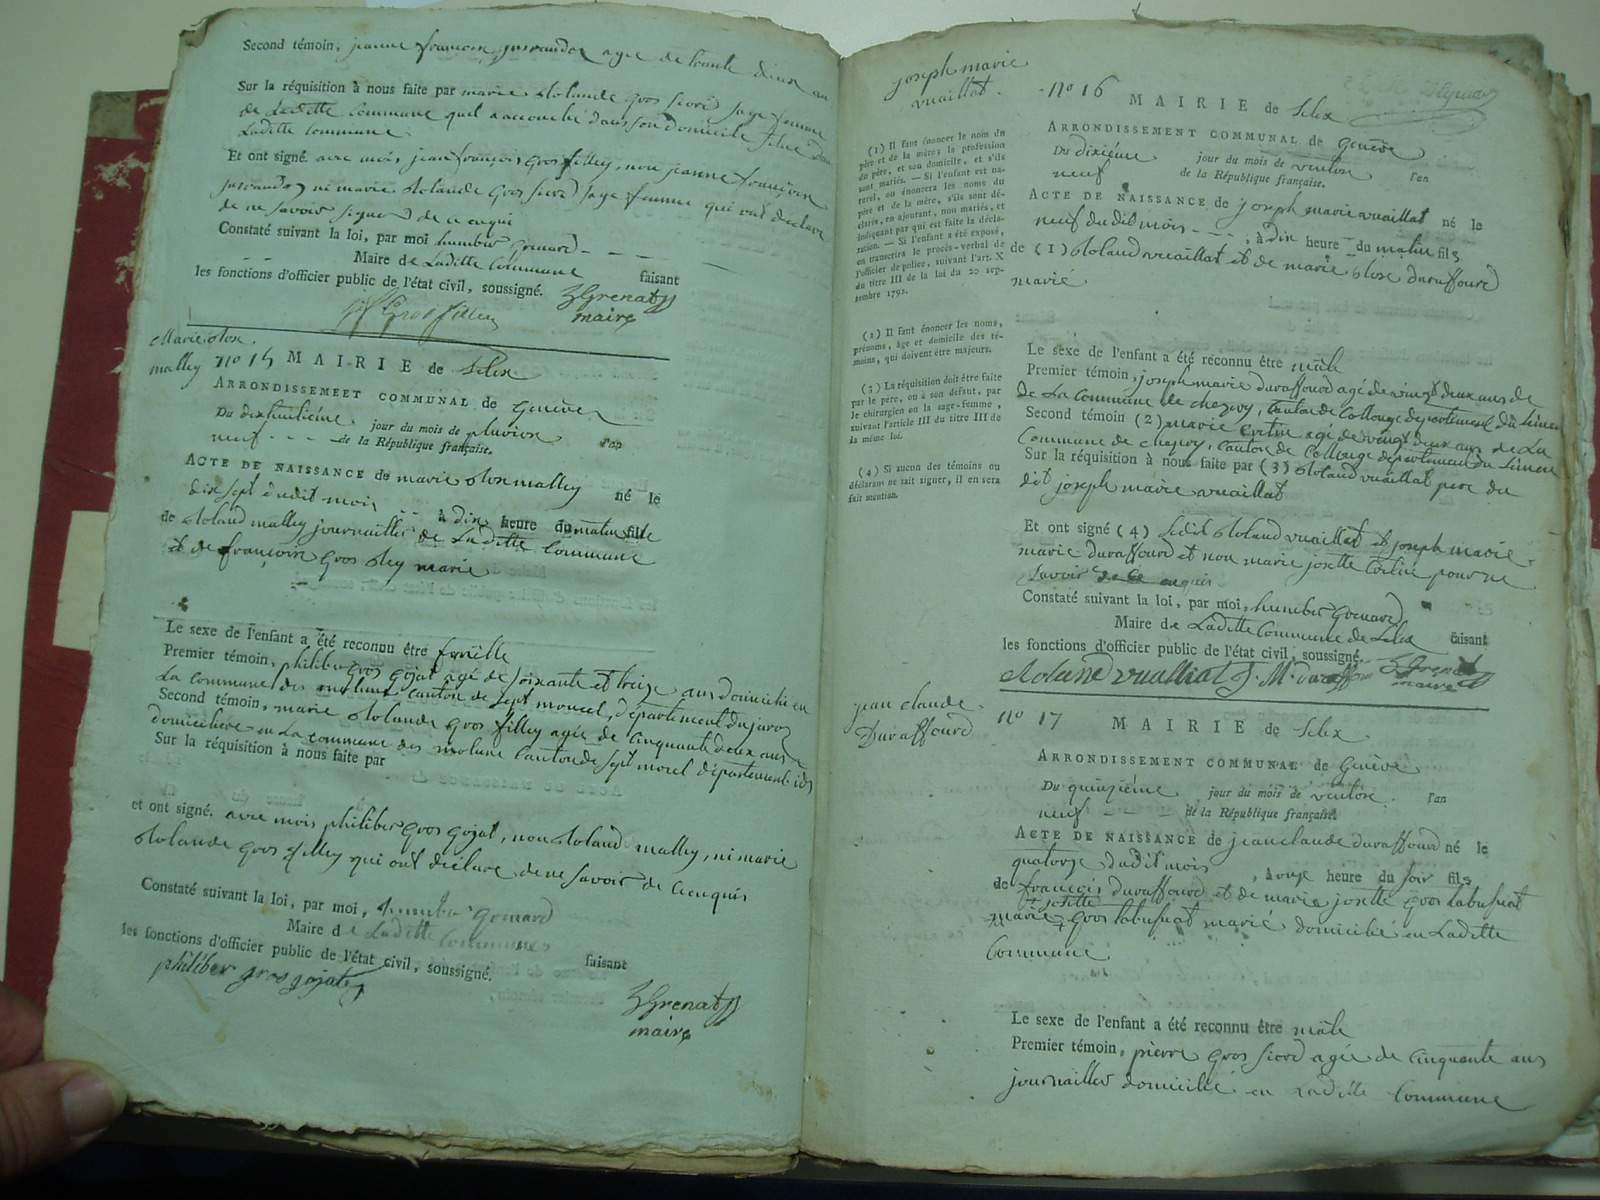 Second témoin, jeanne françoise agée de trante deux an
Sur la réquisition à nous faite par marie Rolande gros fiord sage femme
de Laditte Commune quel a accouché dans son domicile
Laditte Commune.
Et ont signé avec mois jean françois gros filley, non jeanne françoise
ni marie Rolande gros fiord sage femme qui ont déclaré
de ne savoir signer de ce enqui
Constaté suivant la loi, par moi humber grenard
Maire de Laditte Commune faisant
les fonctions d'officier public de l'état civil, soussigné. Grenard
maire
Gros filley
Marie Rose
malley
nº 15 MAIRIE de Lelex
ARRONDISSEMEET COMMUNAL de Genève
Du dixhuitiéme jour du mois de pluviose l'an
neuf - - - de la République française.
ACTE DE NAISSANCE de marie Rose malley né le
dix sept dudit mois à dix heure du matin fille
de Roland malley journallier de Laditte Commune
et de françoise gros Rey marié
Le sexe de l'enfant a été reconnu être femelle
Premier témoin, philiber gros gojat agé de soixante et treize ans Domicilié en
La commune des molune canton de sept moncel, département du jura
Second témoin, marie Rolande gros filley agée de cinquante deux ans
domiciliere en La commune des molune Canton de sept morel département idj
Sur la réquisition à nous faite par
et ont signé. avec mois philiber gros gojat, non Roland malley, ni marie
Rolande gros filley qui ont déclare de ne savoir de ce enquis
Constaté suivant la loi, par moi, humber grenard
Maire de Laditte Communes
faisant
les fonctions d'officier public de l'état civil, soussigné.
philiber gros gojat
Grenard
maire
joseph marie
vuaillat.
nº 16 MAIRIE de Lelex
ARRONDISSEMENT COMMUNAL de Genève
Du dixiéme jour du mois de ventose l'an
neuf de la République française.
ACTE DE NAISSANCE de joseph marie vuaillat né le
neuf du dit mois - - - , à dix heure du matin fils
de (1) Roland vuaillat et de marie Rose duraffourd
marié
(1) Il faut énoncer le nom du
père et de la mère, la profession
du père, et son domicile, et s'ils
sont mariés. — Si l'enfant est naturel,
on énoncera les noms du
père et de la mère, s'ils sont déclarés,
en ajoutant, non mariés, et
indiquant par qui est faite la déclaration.
— Si l'enfant a été exposé,
on transcrira le procès-verbal de
l'officier de police, suivant l'art. X
du titre III de la loi du 20 septembre
1792.
(2) Il faut énoncer les noms,
prénoms, âge et domicile des témoins,
qui doivent être majeurs.
(3) La réquisition doit être faite
par le père, ou à son défaut, par
le chirurgien ou la sage-femme,
suivant l'article III du titre III de
la même loi.
(4) Si aucun des témoins ou
déclarans ne sait signer, il en sera
fait mention.
Le sexe de l'enfant a été reconnu être mâle
Premier témoin, joseph marie duraffourd agé de vingt deux ans de
de La Commune de chezery, Canton de Collonge département du Liman
Second témoin (2) marie agé de vingt deux ans de La
Commune de chezery, Canton de Collonge département du Liman
Sur la réquisition à nous faite par (3) Roland vuaillat pere du
dit joseph marie vuaillat
Et ont signé (4) Ledit Roland vuaillat et joseph marie
marie duraffourd et non marie josette pour ne
savoir de ce enquis
Constaté suivant la loi, par moi, humber grenard
Maire de Laditte Commune de Lelex faisant
les fonctions d'officier public de l'état civil, soussigné. Grenard
maire
Rolaind vualliat J. M. duraffour
jean claude
Duraffourd
nº 17 MAIRIE de Lelex
ARRONDISSEMENT COMMUNAL de Genève
Du quinziéme jour du mois de ventose l'an
neuf - - - de la République française.
ACTE DE NAISSANCE de jean claude duraffourd né le
quatorze dudit mois , à onze heure du soir fils
de françois duraffourd et de marie josette gros tabussiat
josette
marie gros tabussiat marié domicilié en Laditte
Commune
Le sexe de l'enfant a été reconnu être mâle
Premier témoin, pierre gros fiord agée de cinquante ans
journallier domicilié en Laditte Commune